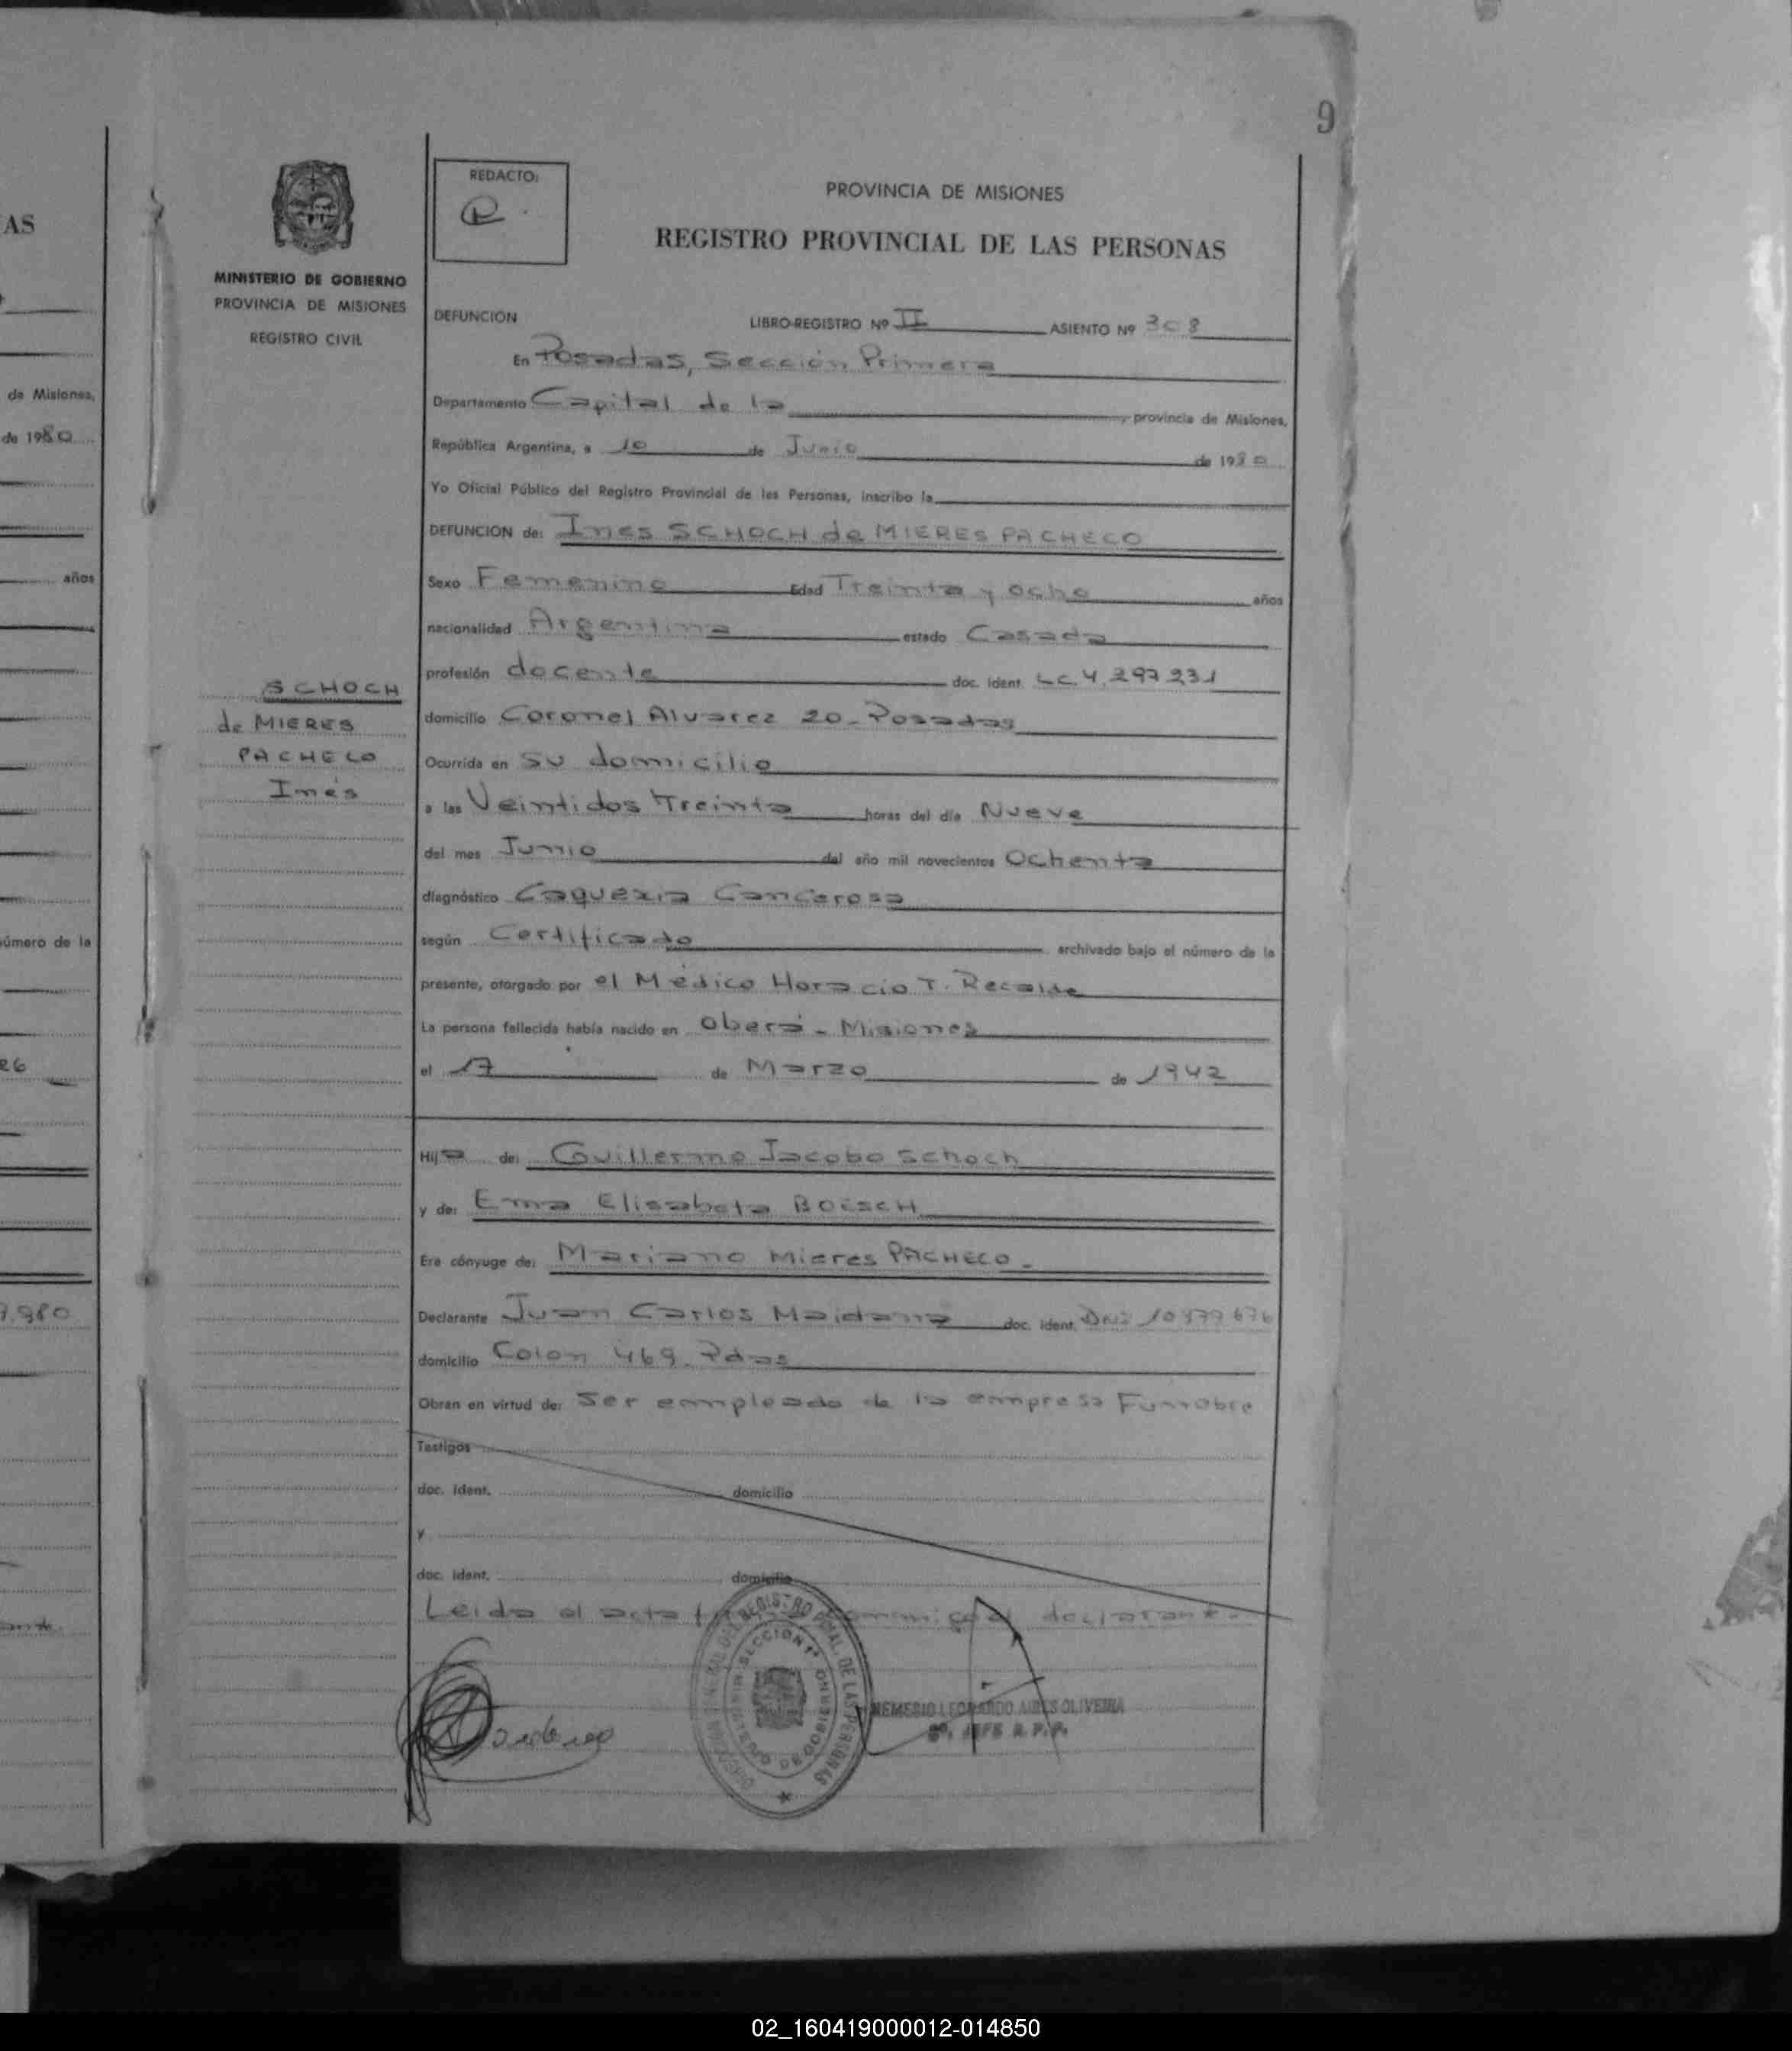 9
AS
de Misiones,
de 1980
años
número de la
26
9.980
MINISTERIO DE GOBIERNO
PROVINCIA DE MISIONES
REGISTRO CIVIL
SCHOCH
de MIERES
PACHECO
Inés
REDACTO:
PROVINCIA DE MISIONES
REGISTRO PROVINCIAL DE LAS PERSONAS
DEFUNCION LIBRO-REGISTRO Nº II ASIENTO Nº 308
En Posadas, Sección Primera
Departamento Capital de la provincia de Misiones,
República Argentina, a 10 de Junio de 1980
Yo Oficial Público del Registro Provincial de las Personas, inscribo la
DEFUNCION de: Ines SCHOCH de MIERES PACHECO
Sexo Femenino Edad Treinta y ocho años
nacionalidad Argentina estado Casada
profesión docente doc. ident. LC. 4.297231
domicilio Coronel Alvarez 20 - Posadas
Ocurrida en su domicilio
a las Veintidos Treinta horas del día Nueve
del mes Junio del año mil novecientos Ochenta
diagnóstico Caquexia Cancerosa
según Certificado archivado bajo el número de la
presente, otorgado por el Médico Horacio T. Recalde
La persona fallecida había nacido en Oberá - Misiones
el 17 de Marzo de 1942
Hija de: Guillermo Jacobo Schoch
y de: Ema Elisabeta BOESCH
Era cónyuge de: Mariano Mieres PACHECO.
Declarante Juan Carlos Maidana doc. ident. DNI 10 379 676
domicilio Colon 469. Pdas
Obran en virtud de: Ser empleado de la empresa Funebre
Testigos
doc. ident. domicilio
y
doc. ident. domicilio
Leida el acta conmigo el declarante.
REGISTRO PCIAL. DE LAS PERSONAS
SECCION 1ª
MINISTERIO DE GOBIERNO
NEMESIO LEONARDO AIRES OLIVEIRA
2º. JEFE R. P. P.
02_160419000012-014850